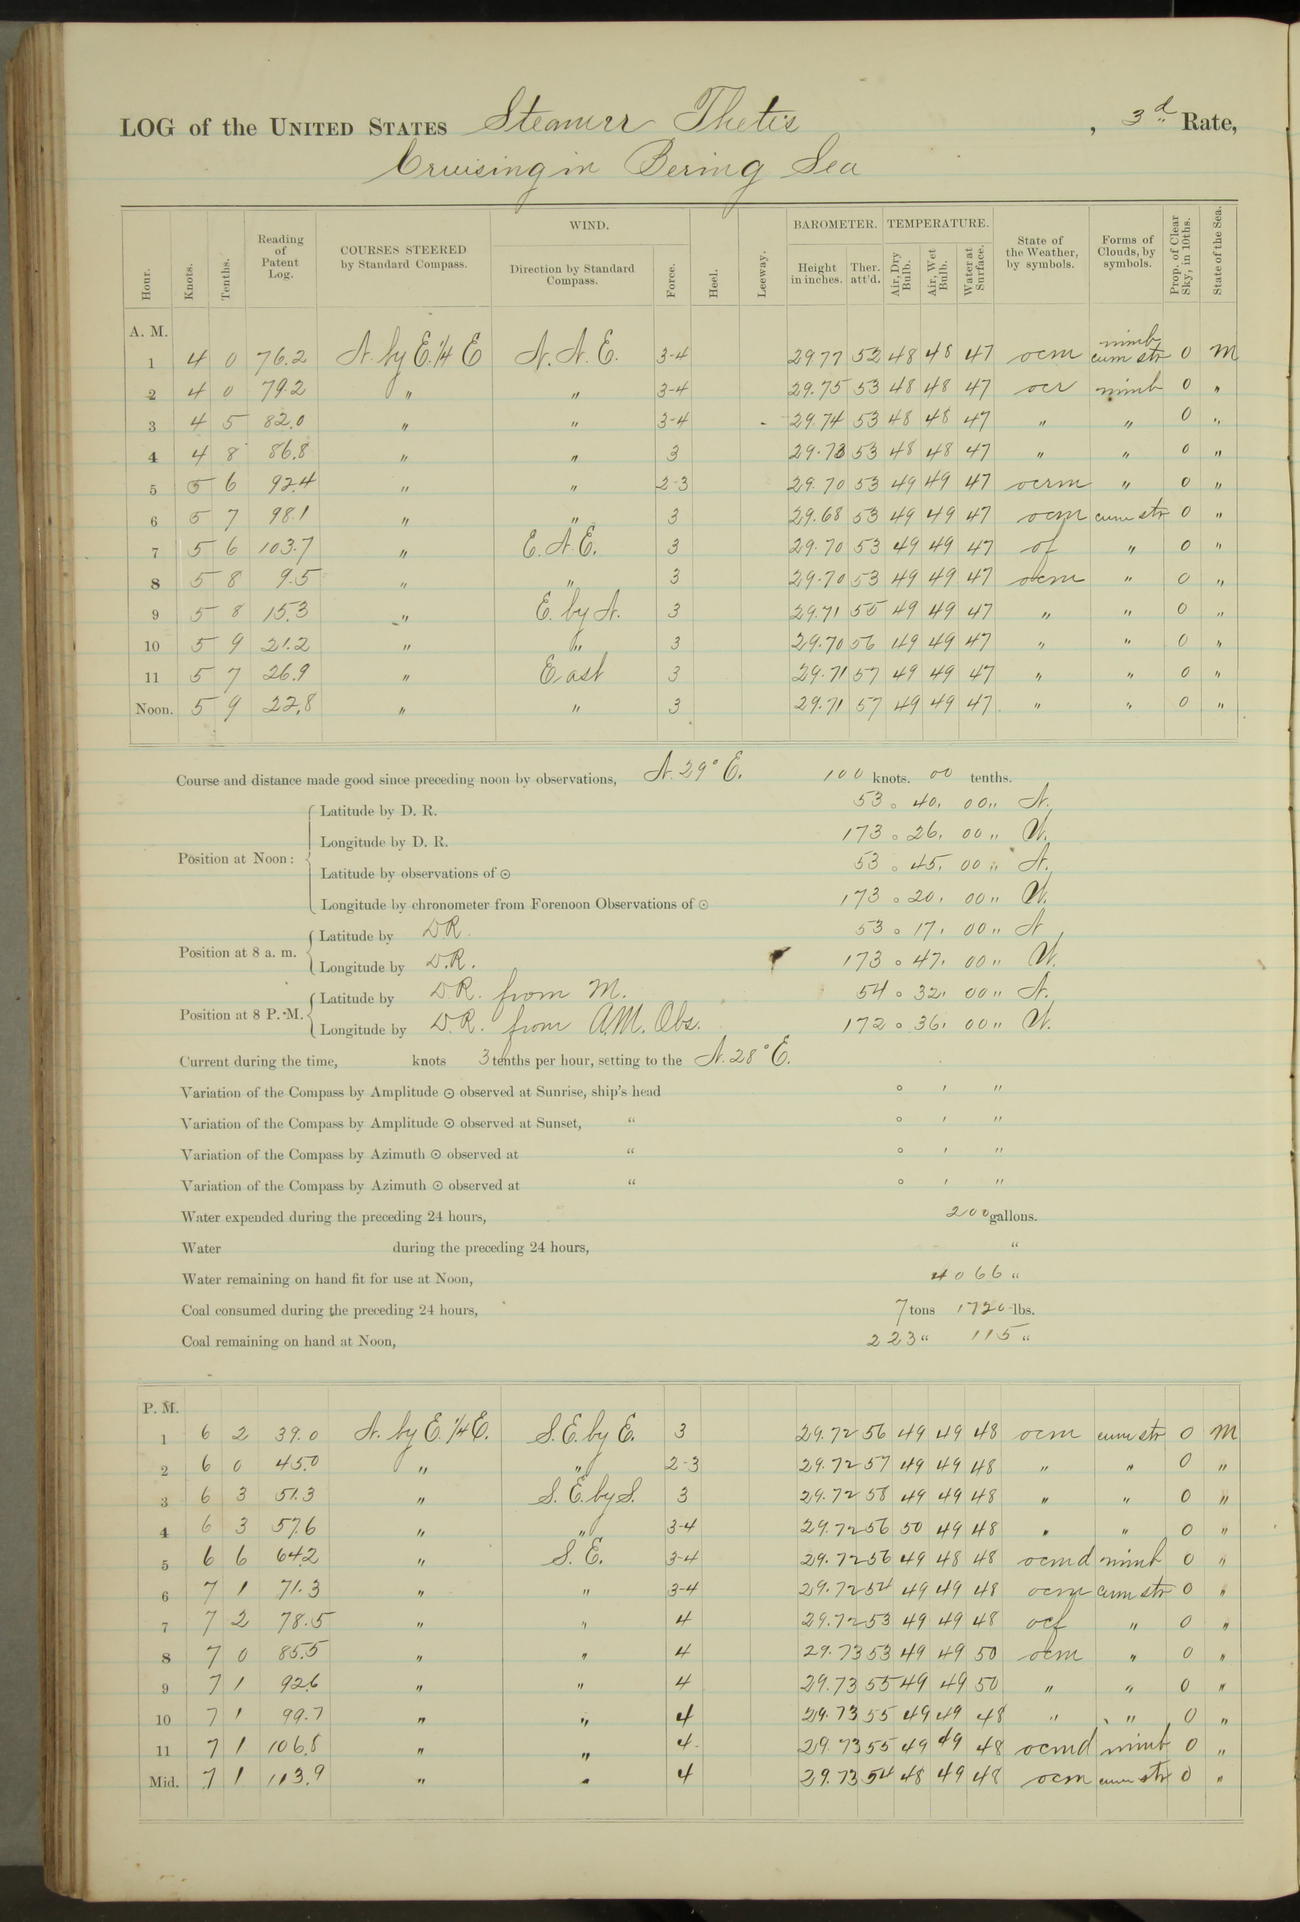 LOG of the UNITED STATES Steamerr Thetis , 3d Rate,
Cruising in Bering Sea
Hour. Knots. Tenths. Reading of Patent Log. COURSES STEERED by Standard Compass. WIND. Direction by Standard Compass. Force. Heel. Leeway. BAROMETER. Height in inches. Ther. att'd. TEMPERATURE. Air, Dry Bulb. Air, Wet Bulb. Water at Surface. State of the Weather, by symbols. Forms of Clouds, by symbols. Prop. of Clear Sky, in 10ths. State of the Sea.
A. M.
1 4 0 76.2 N. by E. 1/4 E N. N. E. 3-4 29 77 52 48 48 47 ocm nimb cum str 0 M
2 4 0 79.2 " " 3-4 29.75 53 48 48 47 ocr nimb 0 "
3 4 5 82.0 " " 3-4 29.74 53 48 48 47 " " 0 "
4 4 8 86.8 " " 3 29.73 53 48 48 47 " " 0 "
5 5 6 92.4 " " 2-3 29.70 53 49 49 47 ocrm " 0 "
6 5 7 98.1 " " 3 29.68 53 49 49 47 ocm cum str 0 "
7 5 6 103.7 " E. N. E. 3 29.70 53 49 49 47 of " 0 "
8 5 8 9.5 " " 3 29.70 53 49 49 47 ocm " 0 "
9 5 8 15.3 " E. by N. 3 29.71 55 49 49 47 " " 0 "
10 5 9 21.2 " " 3 29.70 56 49 49 47 " " 0 "
11 5 7 26.9 " East 3 29.71 57 49 49 47 " " 0 "
Noon. 5 9 22.8 " " 3 29.71 57 49 49 47 " " 0 "
Course and distance made good since preceding noon by observations, N. 29° E. 100 knots. 00 tenths.
Position at Noon: Latitude by D. R. 53 ° 40 ' 00 " N.
Longitude by D. R. 173 ° 26 ' 00 " W.
Latitude by observations of ☉ 53 ° 45 ' 00 " N.
Longitude by chronometer from Forenoon Observations of ☉ 173 ° 20 ' 00 " W.
Position at 8 a. m. Latitude by D.R. 53 ° 17 ' 00 " N
Longitude by D.R. 173 ° 47 ' 00 " W.
Position at 8 P. M. Latitude by D.R. from M. 54 ° 32 ' 00 " N.
Longitude by D.R. from A.M. Obs. 172 ° 36 ' 00 " W.
Current during the time, knots 3 tenths per hour, setting to the N. 28° E.
Variation of the Compass by Amplitude ☉ observed at Sunrise, ship's head ° ' "
Variation of the Compass by Amplitude ☉ observed at Sunset, " ° ' "
Variation of the Compass by Azimuth ☉ observed at " ° ' "
Variation of the Compass by Azimuth ☉ observed at " ° ' "
Water expended during the preceding 24 hours, 200 gallons.
Water during the preceding 24 hours, "
Water remaining on hand fit for use at Noon, 4066 "
Coal consumed during the preceding 24 hours, 7 tons 1720 lbs.
Coal remaining on hand at Noon, 223 " 115 "
P. M.
1 6 2 39.0 N. by E. 1/4 E. S. E. by E. 3 29.72 56 49 49 48 ocm cum str 0 M
2 6 0 45.0 " " 2-3 29.72 57 49 49 48 " " 0 "
3 6 3 51.3 " S. E. by S. 3 29.72 58 49 49 48 " " 0 "
4 6 3 57.6 " " 3-4 29.72 56 50 49 48 " " 0 "
5 6 6 64.2 " S. E. 3-4 29.72 56 49 48 48 ocmd nimb 0 "
6 7 1 71.3 " " 3-4 29.72 54 49 49 48 ocm cum str 0 "
7 7 2 78.5 " " 4 29.72 53 49 49 48 ocf " 0 "
8 7 0 85.5 " " 4 29.73 53 49 49 50 ocm " 0 "
9 7 1 92.6 " " 4 29.73 55 49 49 50 " " 0 "
10 7 1 99.7 " " 4 29.73 55 49 49 48 " " 0 "
11 7 1 106.8 " " 4 29.73 55 49 49 48 ocmd nimb 0 "
Mid. 7 1 113.9 " " 4 29.73 54 48 49 48 ocm cum str 0 "